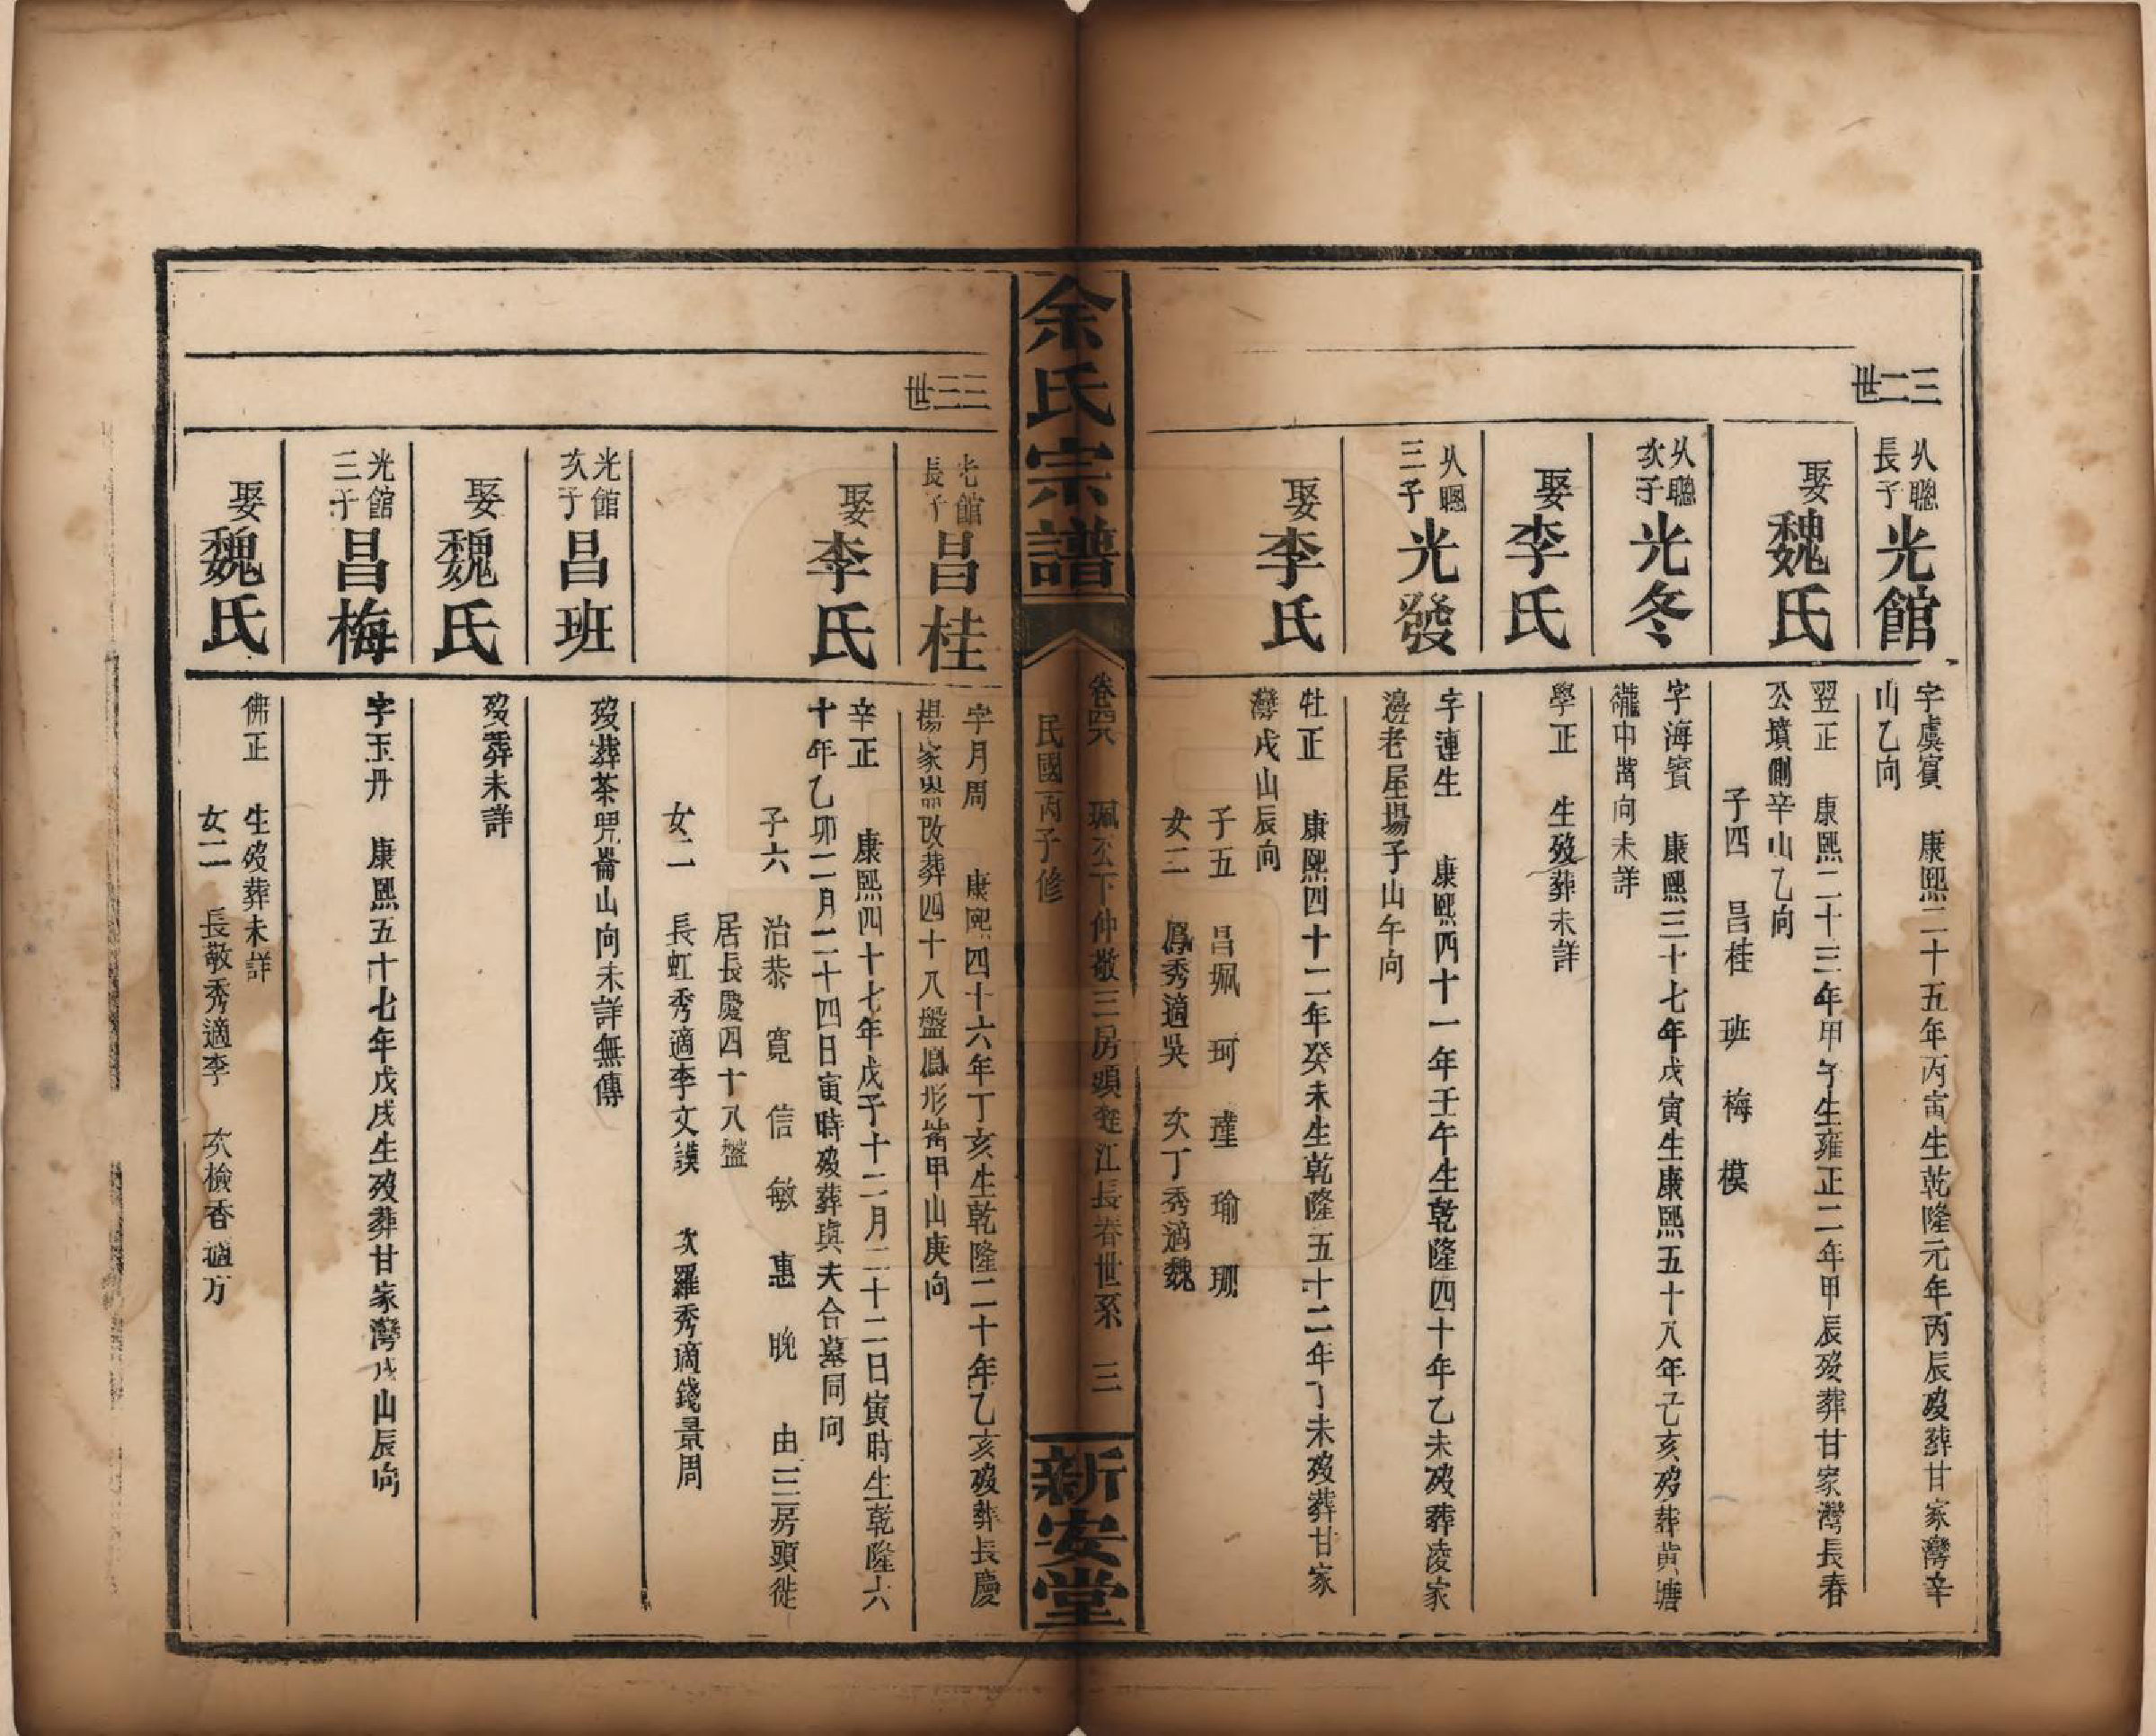 三二世
从聰
長子
光館
字虞賓 康熙二十五年丙寅生乾隆元年丙辰歿葬甘家灣辛
山乙向
娶魏氏
翌正 康熙二十三年甲午生雍正二年甲辰歿葬甘家灣長春
公墳側辛山乙向
子四 昌桂 班 梅 模
从聰
次子
光冬
字海賓 康熙三十七年戊寅生康熙五十八年己亥歿葬黃塘
衝中嵜向未詳
娶李氏
學正 生歿葬未詳
从聰
三子
光發
字連生 康熙四十一年壬午生乾隆四十年乙未歿葬凌家
邊老屋場子山午向
娶李氏
牡正 康熙四十二年癸未生乾隆五十二年丁未歿葬甘家
灣戌山辰向
子五 昌珮 珂 瑾 瑜 珊
女二 鳳秀適吳 次丁秀適魏
余氏宗譜
卷四六 珮公下仲敬三房頭遷江長春世系 三
民國丙子修
新安堂
三三世
光館
長子
昌桂
字月周 康熙四十六年丁亥生乾隆二十年乙亥歿葬長慶
楊家嵒改葬四十八盤鳳形嵜甲山庚向
娶李氏
辛正 康熙四十七年戊子十二月二十二日寅時生乾隆六
十年乙卯二月二十四日寅時歿葬與夫合墓同向
子六 治恭 寬 信 敏 惠 晚 由三房頭徙
居長慶四十八盤
女二 長虹秀適李文謨 次羅秀適錢景周
光館
次子
昌班
歿葬茶兕崙山向未詳無傳
娶魏氏
歿葬未詳
光館
三子
昌梅
字玉丹 康熙五十七年戊戌生歿葬甘家灣戌山辰向
娶魏氏
佛正 生歿葬未詳
女二 長敬秀適李 次檢香適方